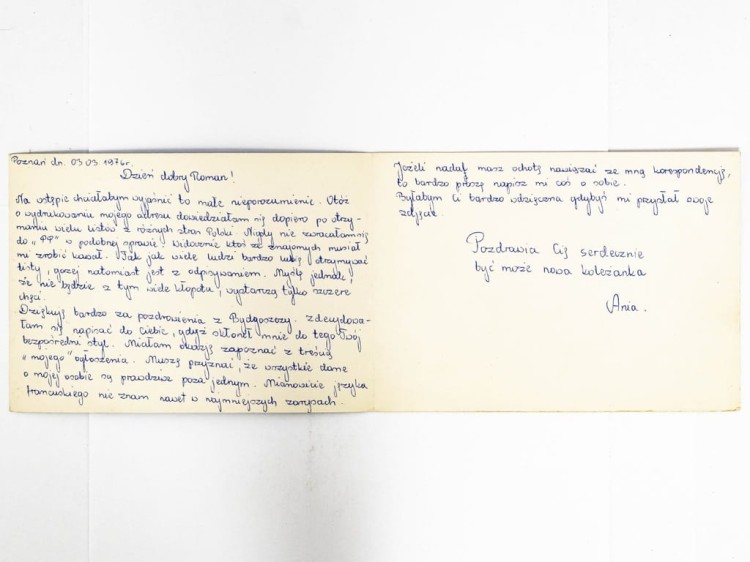 Poznań dn. 03.03.1976r.
Dzień dobry Roman!
Na wstępie chciałabym wyjaśnić to małe nieporozumienie. Otóż
o wydrukowaniu mojego adresu dowiedziałam się dopiero po otrzy-
maniu wielu listów z różnych stron Polski. Nigdy nie zwracałam się
do „PP” w podobnej sprawie. Widocznie ktoś ze znajomych musiał
mi zrobić kawał. Tak jak wiele ludzi bardzo lubię otrzymywać
listy, gorzej natomiast jest z odpisywaniem. Myślę jednak,
że nie będzie z tym wiele kłopotu, wystarczą tylko szczere
chęci.
Dziękuję bardzo za pozdrowienia z Bydgoszczy. Zdecydowa-
łam się napisać do Ciebie, gdyż skłonił mnie do tego Twój
bezpośredni styl. Miałam okazję zapoznać z treścią
„mojego” ogłoszenia. Muszę przyznać, że wszystkie dane
o mojej osobie są prawdziwe poza jednym. Mianowicie języka
francuskiego nie znam nawet w najmniejszych zarysach.
Jeżeli nadal masz ochotę nawiązać ze mną korespondencję,
to bardzo proszę napisz mi coś o sobie.
Byłabym Ci bardzo wdzięczna gdybyś mi przysłał swoje
zdjęcie.
Pozdrawia Cię serdecznie
być może nowa koleżanka
Ania.